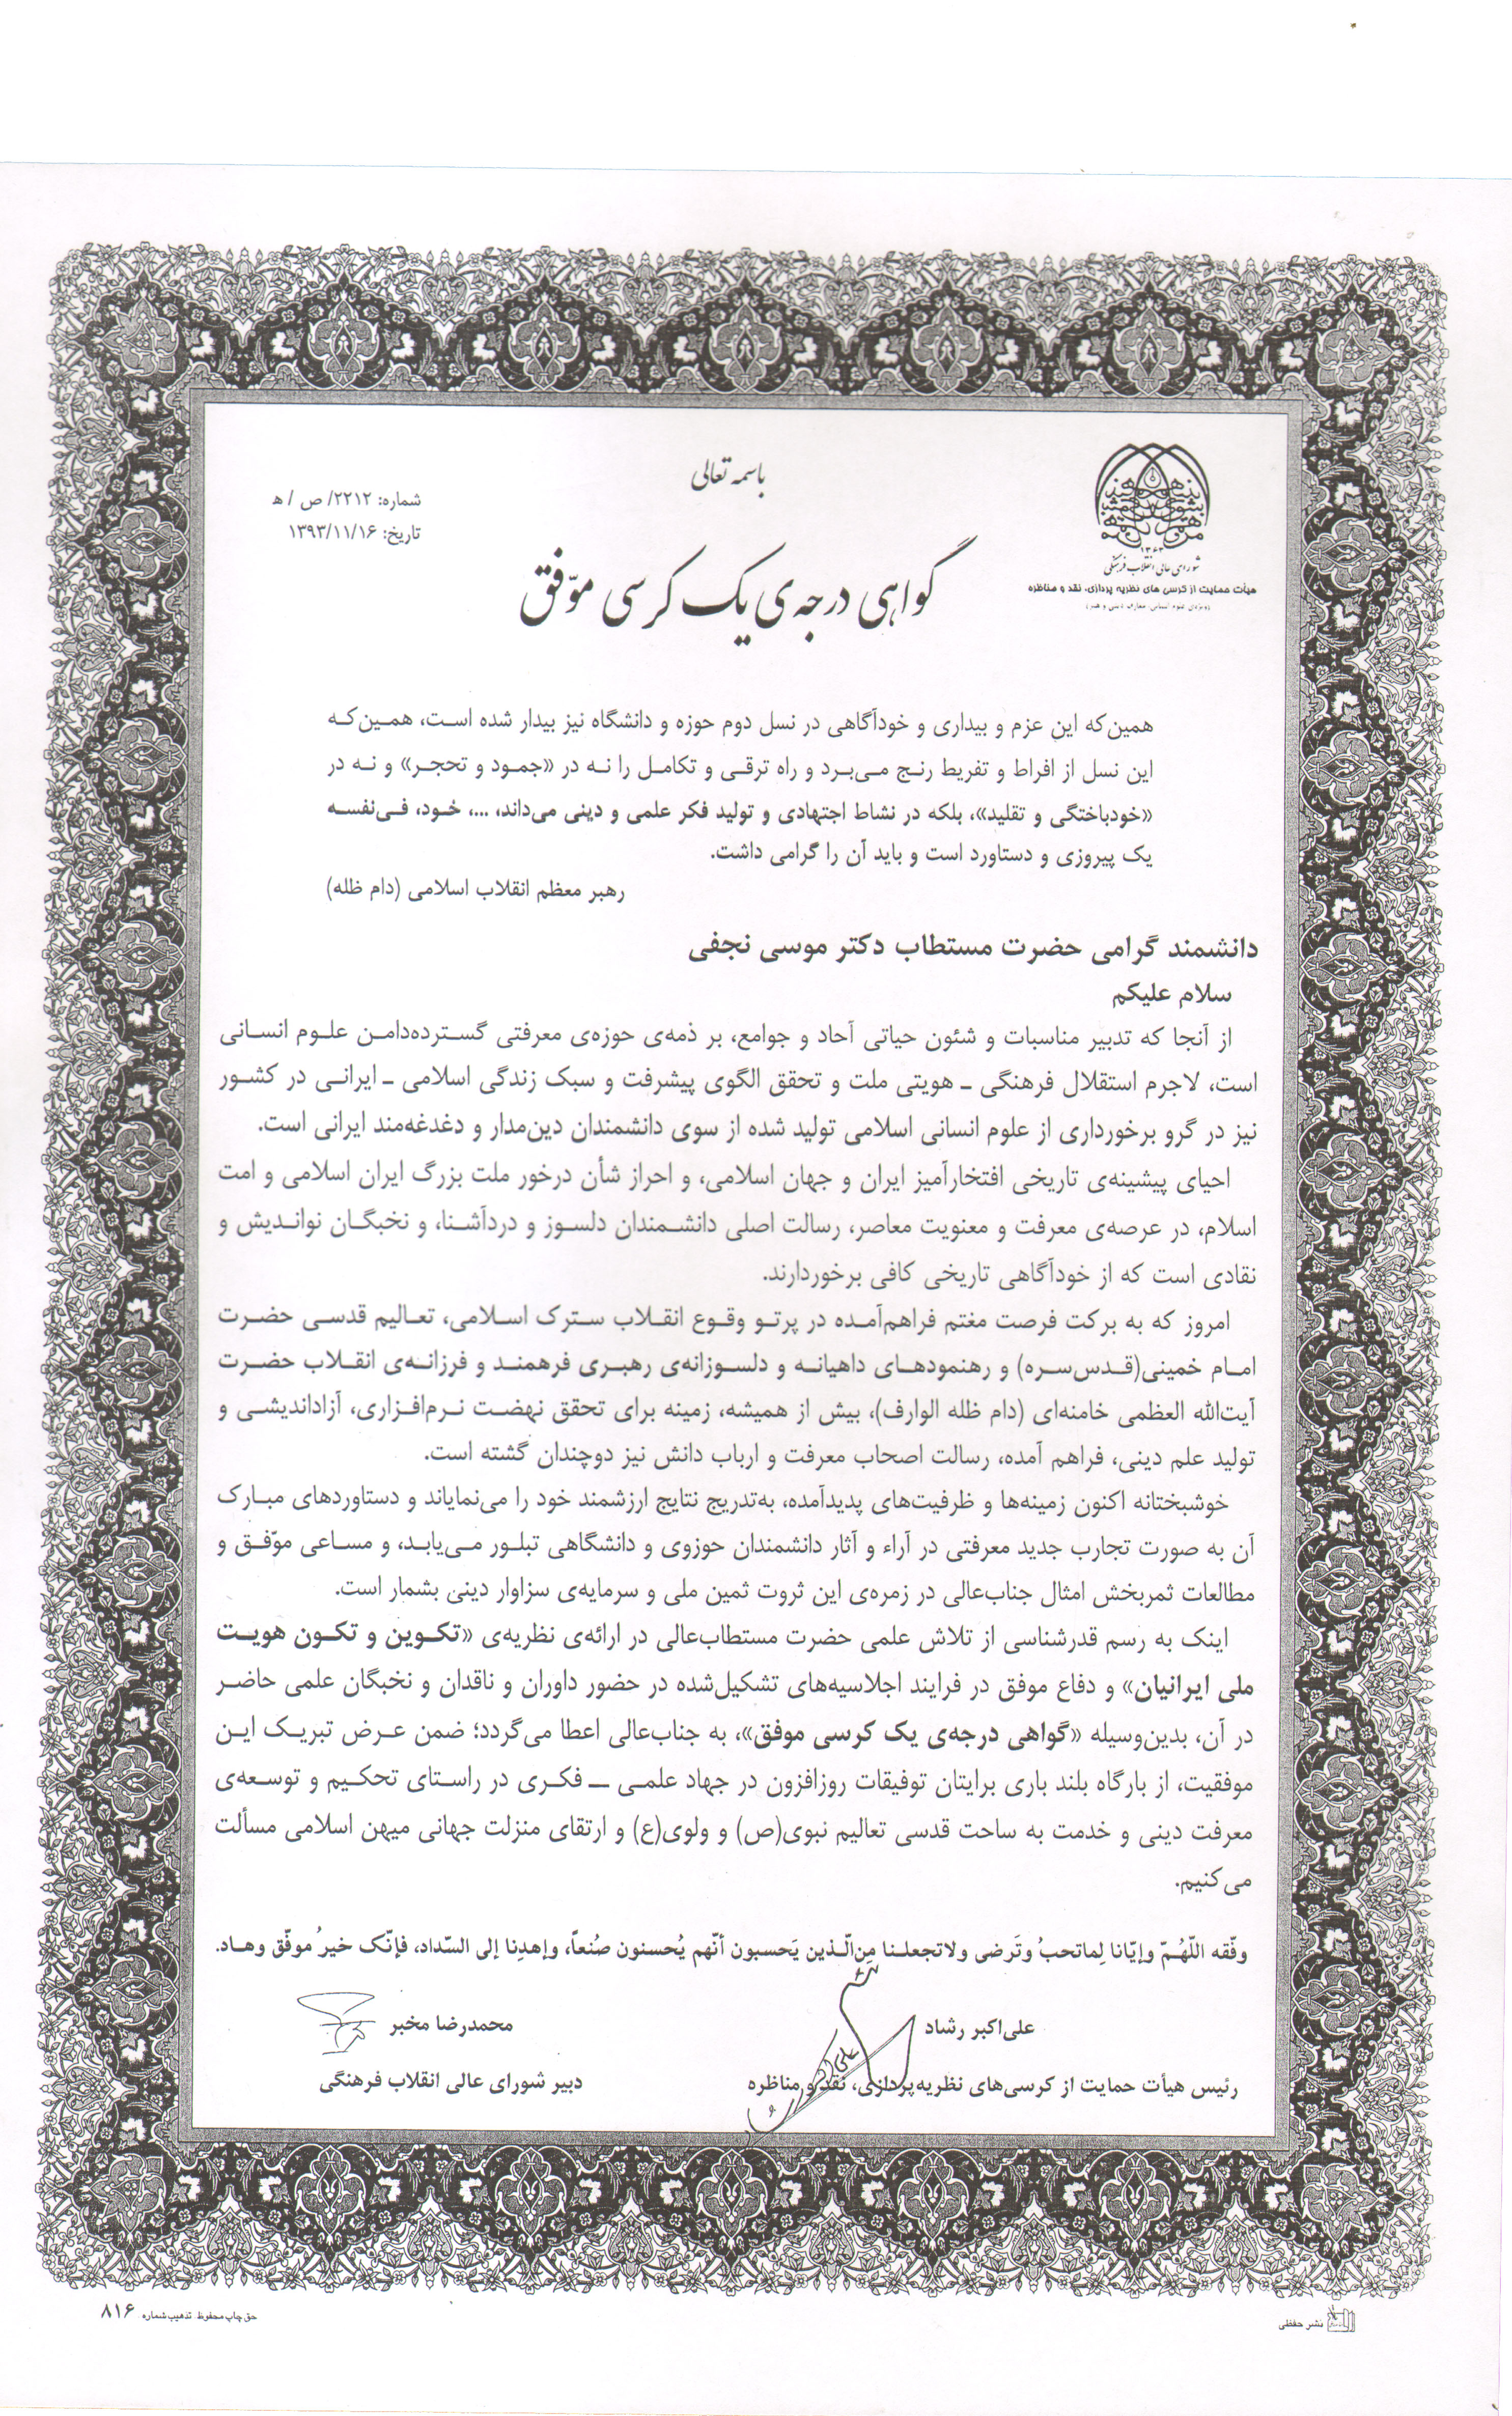 باسمه تعالی
شماره: ۲۲۱۲/ ص / ه
تاریخ: ۱۳۹۳/۱۱/۱۶
۱۳۶۳
شورای عالی انقلاب فرهنگی
هیأت حمایت از کرسی های نظریه پردازی، نقد و مناظره
(ویژه‌ی علوم انسانی، معارف دینی و هنر)
گواهی درجه‌ی یک کرسی موّفق
همین‌که این عزم و بیداری و خودآگاهی در نسل دوم حوزه و دانشگاه نیز بیدار شده است، همین‌که
این نسل از افراط و تفریط رنج می‌برد و راه ترقی و تکامل را نه در «جمود و تحجر» و نه در
«خودباختگی و تقلید»، بلکه در نشاط اجتهادی و تولید فکر علمی و دینی می‌داند، ...، خود، فی‌نفسه
یک پیروزی و دستاورد است و باید آن را گرامی داشت.
رهبر معظم انقلاب اسلامی (دام ظله)
دانشمند گرامی حضرت مستطاب دکتر موسی نجفی
سلام علیکم
از آنجا که تدبیر مناسبات و شئون حیاتی آحاد و جوامع، بر ذمه‌ی حوزه‌ی معرفتی گسترده‌دامن علوم انسانی
است، لاجرم استقلال فرهنگی ـ هویتی ملت و تحقق الگوی پیشرفت و سبک زندگی اسلامی ـ ایرانی در کشور
نیز در گرو برخورداری از علوم انسانی اسلامی تولید شده از سوی دانشمندان دین‌مدار و دغدغه‌مند ایرانی است.
احیای پیشینه‌ی تاریخی افتخارآمیز ایران و جهان اسلامی، و احراز شأن درخور ملت بزرگ ایران اسلامی و امت
اسلام، در عرصه‌ی معرفت و معنویت معاصر، رسالت اصلی دانشمندان دلسوز و دردآشنا، و نخبگان نواندیش و
نقادی است که از خودآگاهی تاریخی کافی برخوردارند.
امروز که به برکت فرصت مغتم فراهم‌آمده در پرتو وقوع انقلاب سترک اسلامی، تعالیم قدسی حضرت
امام خمینی(قدس‌سره) و رهنمودهای داهیانه و دلسوزانه‌ی رهبری فرهمند و فرزانه‌ی انقلاب حضرت
آیت‌الله العظمی خامنه‌ای (دام ظله الوارف)، بیش از همیشه، زمینه برای تحقق نهضت نرم‌افزاری، آزاداندیشی و
تولید علم دینی، فراهم آمده، رسالت اصحاب معرفت و ارباب دانش نیز دوچندان گشته است.
خوشبختانه اکنون زمینه‌ها و ظرفیت‌های پدیدآمده، به‌تدریج نتایج ارزشمند خود را می‌نمایاند و دستاوردهای مبارک
آن به صورت تجارب جدید معرفتی در آراء و آثار دانشمندان حوزوی و دانشگاهی تبلور می‌یابد، و مساعی موّفق و
مطالعات ثمربخش امثال جناب‌عالی در زمره‌ی این ثروت ثمین ملی و سرمایه‌ی سزاوار دینی بشمار است.
اینک به رسم قدرشناسی از تلاش علمی حضرت مستطاب‌عالی در ارائه‌ی نظریه‌ی «تکوین و تکون هویت
ملی ایرانیان» و دفاع موفق در فرایند اجلاسیه‌های تشکیل‌شده در حضور داوران و ناقدان و نخبگان علمی حاضر
در آن، بدین‌وسیله «گواهی درجه‌ی یک کرسی موفق»، به جناب‌عالی اعطا می‌گردد؛ ضمن عرض تبریک این
موفقیت، از بارگاه بلند باری برایتان توفیقات روزافزون در جهاد علمی ــ فکری در راستای تحکیم و توسعه‌ی
معرفت دینی و خدمت به ساحت قدسی تعالیم نبوی(ص) و ولوی(ع) و ارتقای منزلت جهانی میهن اسلامی مسألت
می‌کنیم.
وفّقه اللّهُمّ وإیّانا لِماتحبُ وتَرضی ولاتجعلنا مِن‌الّذین یَحسبون أنّهم یُحسنون صُنعاً، وإهدِنا إلی السّداد، فإنّک خیرُ موفّق وهاد.
علی‌اکبر رشاد
رئیس هیأت حمایت از کرسی‌های نظریه‌پردازی، نقد و مناظره
محمدرضا مخبر
دبیر شورای عالی انقلاب فرهنگی
نشر حفظی
حق چاپ محفوظ تذهیب شماره ۸۱۶